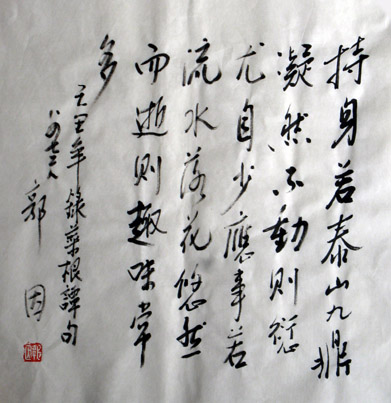 持身若泰山九鼎
凝然不動則愆
尤自少應事若
流水落花悠然
而逝則趣味常
多
年錄菜根譚句
郭因